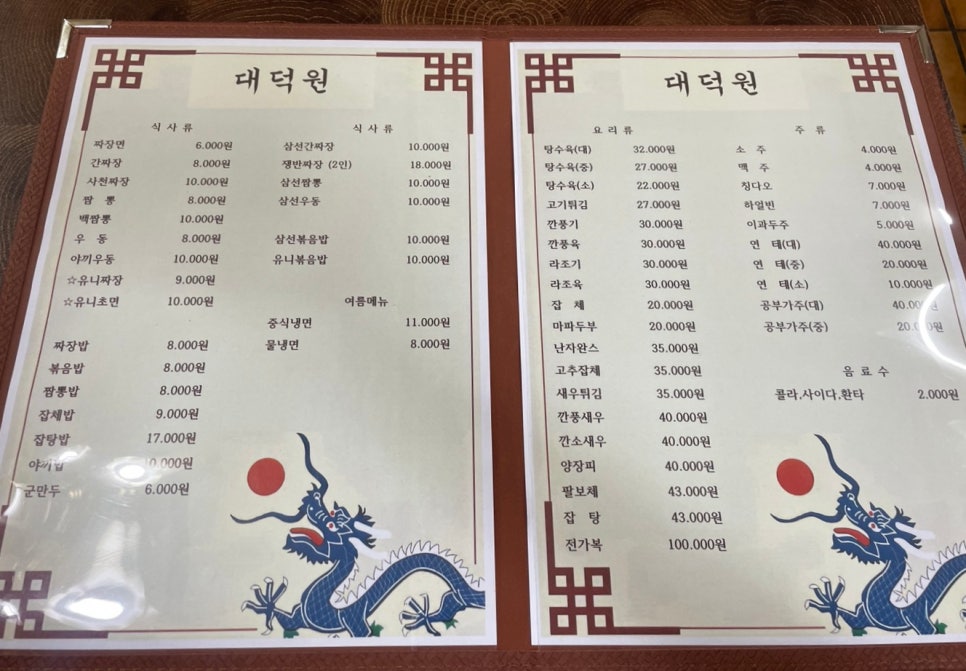 대덕원
식 사 류
짜장면 6.000원
간짜장 8.000원
사천짜장 10.000원
짬 뽕 8.000원
백짬뽕 10.000원
우 동 8.000원
야끼우동 10.000원
☆유니짜장 9.000원
☆유니초면 10.000원
짜장밥 8.000원
볶음밥 8.000원
짬뽕밥 8.000원
잡체밥 9.000원
잡탕밥 17.000원
야끼밥
군만두 6.000원
식 사 류
삼선간짜장 10.000원
쟁반짜장 (2인) 18.000원
삼선짬뽕 10.000원
삼선우동 10.000원
삼선볶음밥 10.000원
유니볶음밥 10.000원
여름메뉴
중식냉면 11.000원
물냉면 8.000원
대덕원
요 리 류
탕수육(대) 32.000원
탕수육(중) 27.000원
탕수육(소) 22.000원
고기튀김 27.000원
깐풍기 30.000원
깐풍육 30.000원
라조기 30.000원
라조육 30.000원
잡 체 20.000원
마파두부 20.000원
난자완스 35.000원
고추잡체 35.000원
새우튀김 35.000원
깐풍새우 40.000원
깐소새우 40.000원
양장피 40.000원
팔보체 43.000원
잡 탕 43.000원
전가복 100.000원
주 류
소 주 4.000원
맥 주 4.000원
칭다오 7.000원
하얼빈 7.000원
이과두주 5.000원
연 태(대) 40.000원
연 태(중) 20.000원
연 태(소) 10.000원
공부가주(대)
공부가주(중)
음 료 수
콜라,사이다,환타 2.000원